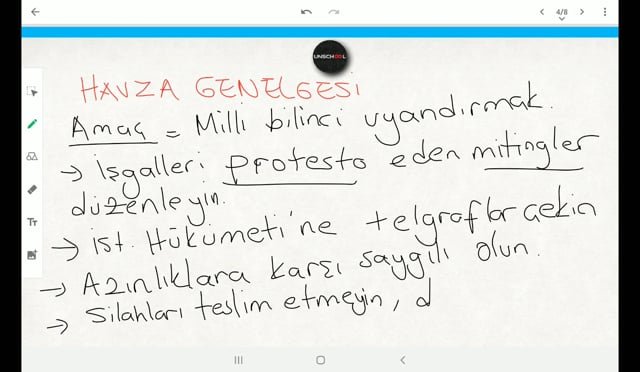 4/8
UNSCHOOL
HAVZA GENELGESİ
Amaç = Milli bilinci uyandırmak.
→ İşgalleri protesto eden mitingler
düzenleyin.
→ İst. Hükümeti'ne telgraflar çekin
→ Azınlıklara karşı saygılı olun.
→ Silahları teslim etmeyin, d
TT